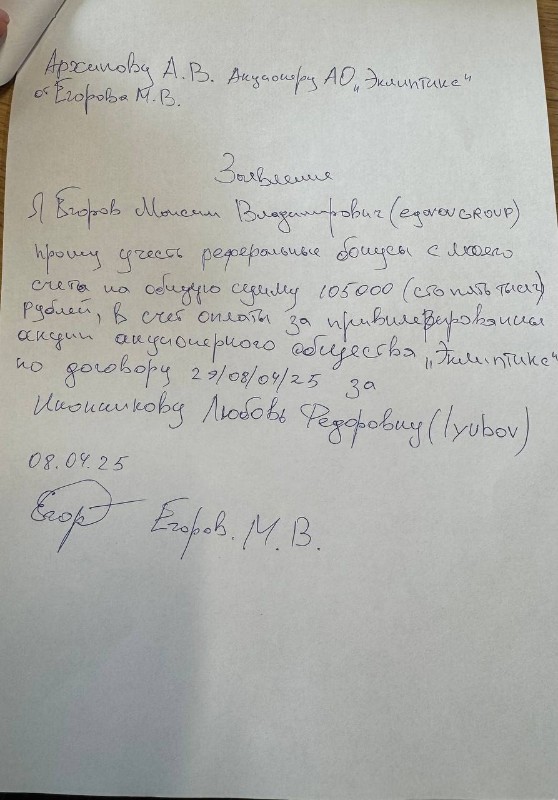 Архипову А.В. Акционеру АО „Эклиптика“
от Егорова М.В.
Заявление
Я Егоров Максим Владимирович (egorovGROUP)
прошу учесть реферальные бонусы с моего
счета на общую сумму 105000 (сто пять тысяч)
рублей, в счет оплаты за привилегированные
акции акционерного общества „Эклиптика“
по договору 29/08/04/25 за
Любовь Федоровну (lyubov)
08.04.25
Егоров. М. В.